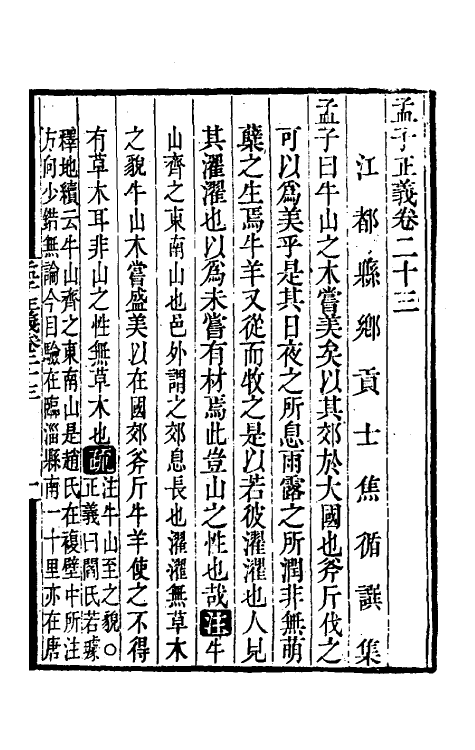 孟子正義卷二十三
江都縣鄉貢士焦循譔集
孟子曰牛山之木嘗美矣以其郊於大國也斧斤伐之
可以爲美乎是其日夜之所息雨露之所潤非無萌
蘗之生焉牛羊又從而牧之是以若彼濯濯也人見
其濯濯也以爲未嘗有材焉此豈山之性也哉注牛
山齊之東南山也邑外謂之郊息長也濯濯無草木
之貌牛山木嘗盛美以在國郊斧斤牛羊使之不得
有草木耳非山之性無草木也疏
注牛山至之貌○
正義曰閻氏若璩
釋地續云牛山齊之東南山是趙氏在複壁中所注
方向少錯無論今目驗在臨淄縣南一十里亦在唐
孟子正義卷二十三
一